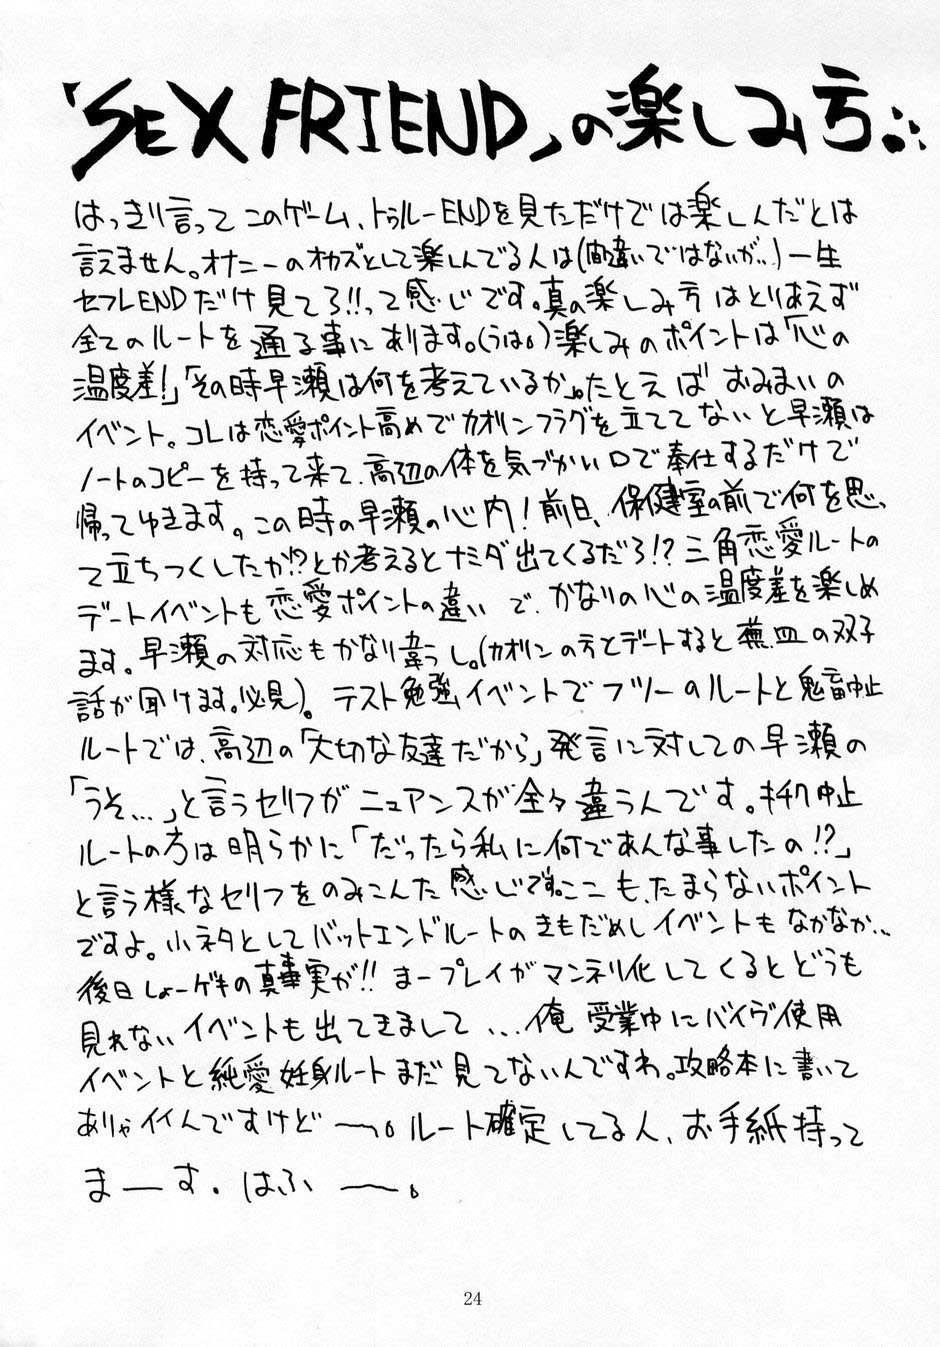 「SEX FRIEND」の楽しみ方∴
はっきり言ってこのゲーム、トゥルーENDを見ただけでは楽しんだとは
言えません。オナニーのオカズとして楽しんでる人は(間違いではないが…)一生
セフレENDだけ見てろ!!って感じです。真の楽しみ方はとりあえず
全てのルートを通る事にあります。(うは。)楽しみのポイントは「心の
温度差!」「その時早瀬は何を考えているか」。たとえばおみまいの
イベント。コレは恋愛ポイント高めでカオリンフラグを立ててないと早瀬は
ノートのコピーを持って来て、高辺の体を気づかい口で奉仕するだけで
帰ってゆきます。この時の早瀬の心内!前日、保健室の前で何を思っ
て立ちつくしたか!?とか考えるとナミダ出てくるだろ!?三角恋愛ルートの
デートイベントも恋愛ポイントの違いで、かなりの心の温度差を楽しめ
ます。早瀬の対応もかなり違うし。(カオリンの方とデートすると蕪皿の双子
話が聞けます。必見)。テスト勉強イベントでフツーのルートと鬼畜中止
ルートでは、高辺の「大切な友達だから」発言に対しての早瀬の
「うそ…」と言うセリフがニュアンスが全々違うんです。キチク中止
ルートの方は明らかに「だったら私に何であんな事したの!?」
と言う様なセリフをのみこんだ感じです。ここも、たまらないポイント
ですよ。小ネタとしてバットエンドルートのきもだめしイベントもなかなか…
後日しょーゲキの真事実が!!まープレイがマンネリ化してくるとどうも
見れないイベントも出てきまして…俺 受業中にバイヴ使用
イベントと純愛妊身ルートまだ見てないんですわ。攻略本に書いて
ありゃイイんですけど〜。ルート確定してる人、お手紙持って
まーす。はふ〜。
24